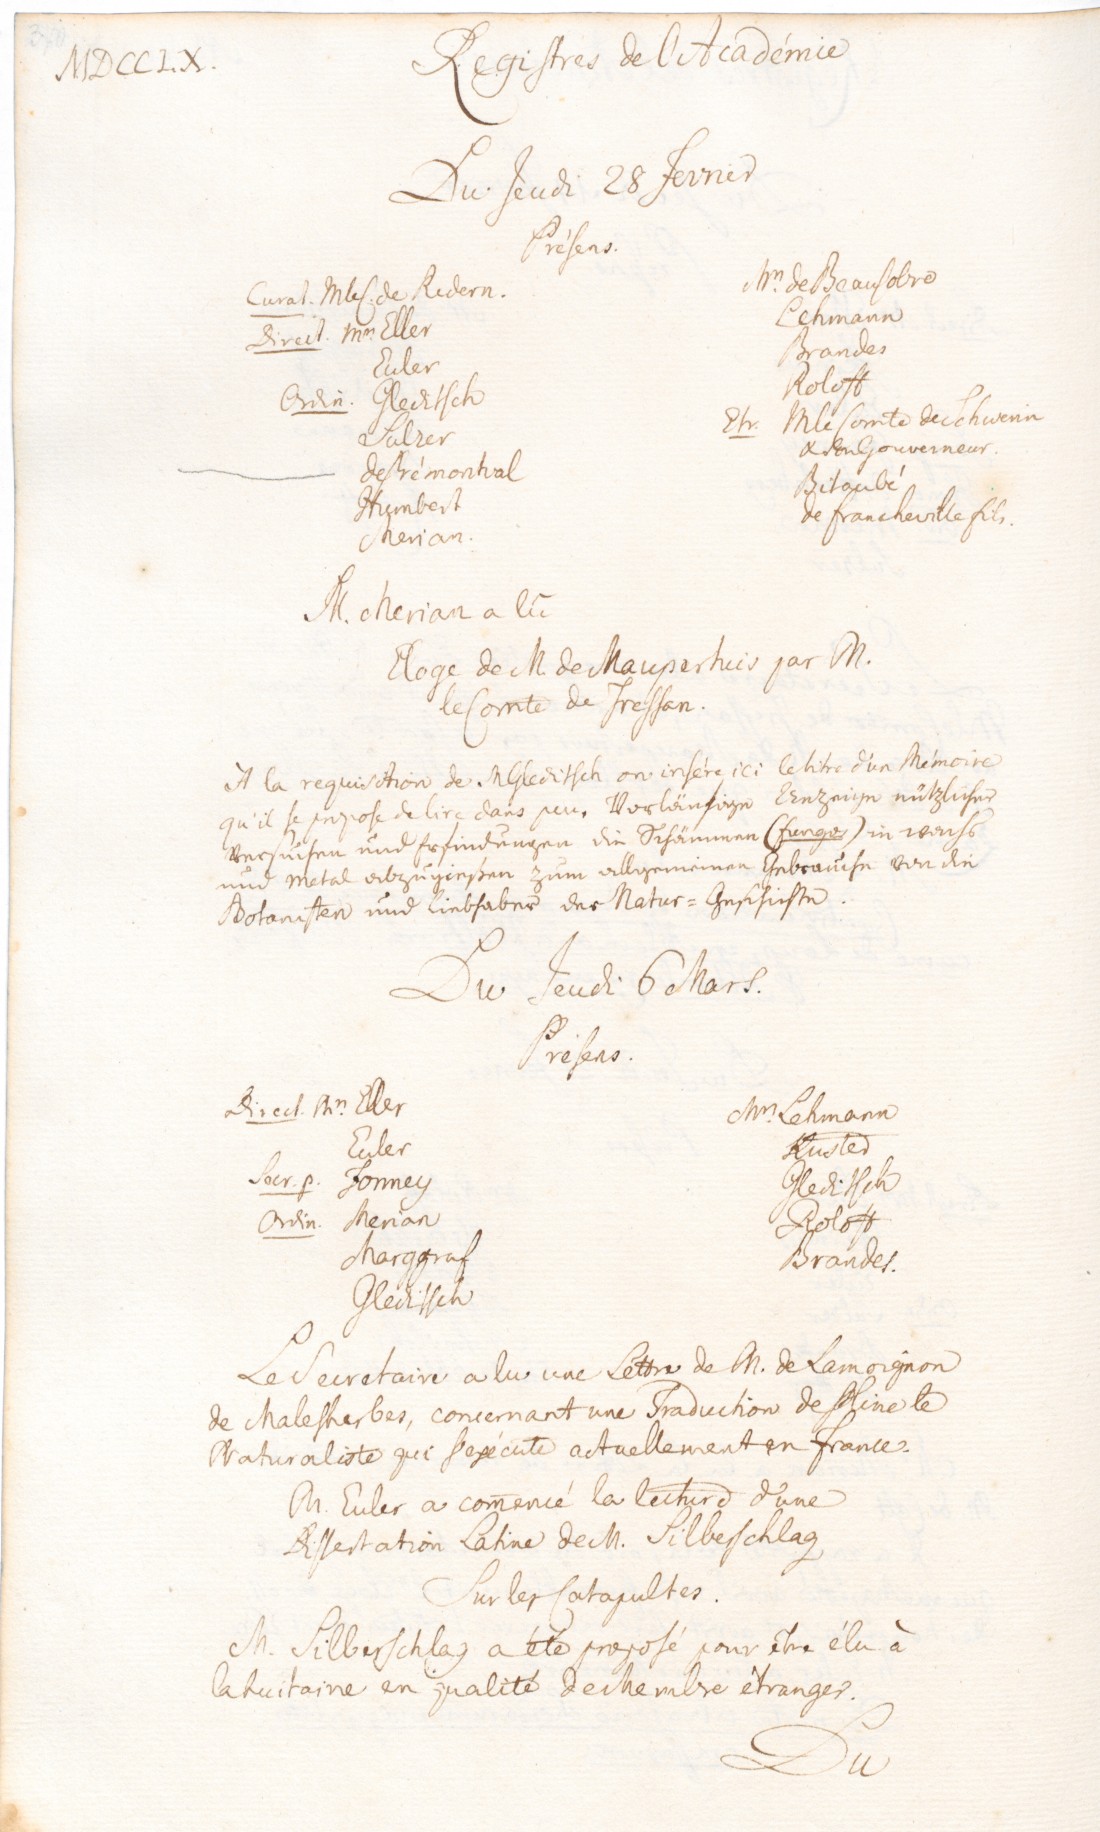 MDCCLX.
Registres de l'Académie
Du Jeudi 28 Fevrier
Présens.
Curat. M le C. de Redern.
Direct. Mrs Eller
Euler
Ordin. Gleditsch
Sulzer
de Prémontval
Humbert
Merian.
Mrs de Beausobre
Lehmann
Brandes
Roloff
Etr. M le Comte de Schwerin
& son Gouverneur.
Bitaubé
de Francheville fils.
M. Merian a lû
Eloge de M. de Maupertuis par M.
le Comte de Tressan.
A la requisition de M Gleditsch on insére ici le titre d'un Mémoire
qu'il se propose de lire dans peu. Vorläufige Anzeige nützlicher
Versuchen und Erfindungen die Schämmen (fungos) in Wachs
und Metal abzugießen zum allgemeinen Gebrauche von die
Botanisten und Liebhaber der Natur=Geschichte.
Du Jeudi 6 Mars.
Présens.
Direct. Mrs. Eller
Euler
Secr. p. Formey
Ordin. Merian
Marggraf
Gleditsch
Mrs. Lehmann
Kuster
Gleditsch
Roloff
Brandes.
Le Secretaire a lu une Lettre de M. de Lamoignon
de Malesherbes, concernant une Traduction de Pline le
Naturaliste qui s'exécute actuellement en France.
M. Euler a comencé la lecture d'une
Dissertation Latine de M. Silberschlag
Sur les Catapultes.
M. Silberschlag a été proposé pour être élu à
la huitaine en qualité de Membre étranger.
Du